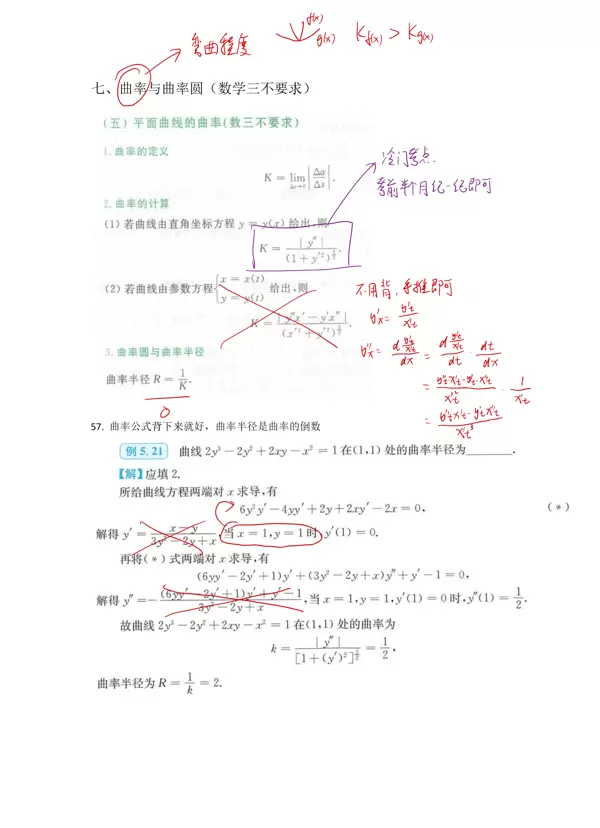 弯曲程度 f(x) g(x) K_{f(x)} > K_{g(x)}
七、曲率与曲率圆（数学三不要求）
(五) 平面曲线的曲率(数三不要求)
1. 曲率的定义
K = lim_{Δs→0} |Δα/Δs|.
冷门考点
考前半个月记一记即可
2. 曲率的计算
(1) 若曲线由直角坐标方程 y = y(x) 给出,则
K = |y″| / (1 + y′²)^{3/2}.
(2) 若曲线由参数方程 { x = x(t) y = y(t) 给出,则
K = |y″x′ − y′x″| / (x′² + y′²)^{3/2}.
不用背,手推即可
y′x = y′t / x′t
y″x = d(y′t/x′t)/dx = d(y′t/x′t)/dt · dt/dx
3. 曲率圆与曲率半径
曲率半径 R = 1/K.
57. 曲率公式背下来就好，曲率半径是曲率的倒数
例 5.21 曲线 2y³ − 2y² + 2xy − x² = 1 在(1,1) 处的曲率半径为______.
【解】应填 2.
所给曲线方程两端对 x 求导,有
6y²y′ − 4yy′ + 2y + 2xy′ − 2x = 0, (*)
解得 y′ = (x − y)/(3y² − 2y + x),当 x = 1,y = 1 时,y′(1) = 0.
再将(*) 式两端对 x 求导,有
(6yy′ − 2y′ + 1)y′ + (3y² − 2y + x)y″ + y′ − 1 = 0,
解得 y″ = − ((6yy′ − 2y′ + 1)y′ + y′ − 1)/(3y² − 2y + x),当 x = 1,y = 1,y′(1) = 0 时,y″(1) = 1/2.
故曲线 2y³ − 2y² + 2xy − x² = 1 在(1,1) 处的曲率为
k = |y″| / [1 + (y′)²]^{3/2} = 1/2,
曲率半径为 R = 1/k = 2.